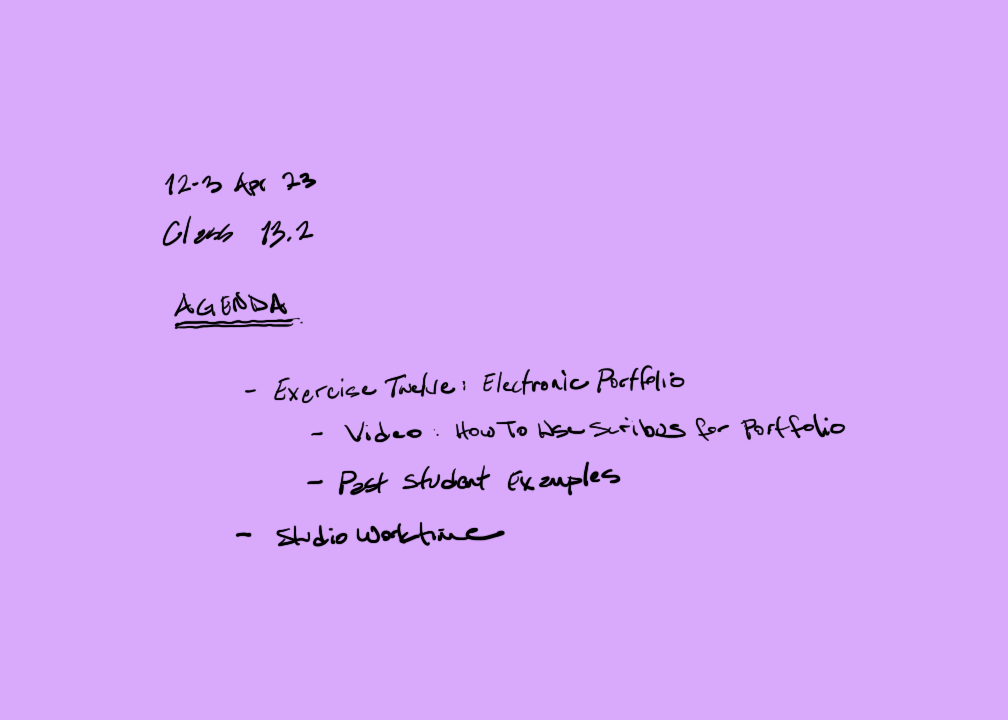 12-3 Apr 23
Class 13.2
AGENDA
- Exercise Twelve: Electronic Portfolio
- Video: How To Use Scribus for Portfolio
- Past Student Examples
- Studio Worktime